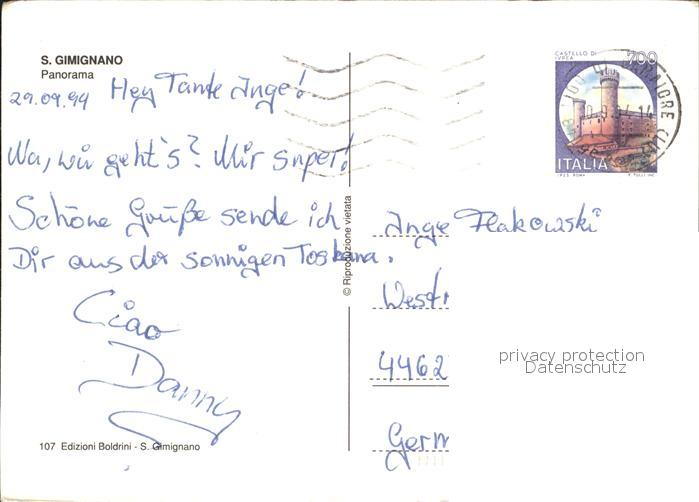 S. GIMIGNANO
Panorama
29.09.94 Hey Tante Inge!
Na, wie geht's? Mir super!
Schöne Grüße sende ich
Dir aus der sonnigen Toskana.
Ciao
Danny
107 Edizioni Boldrini - S. Gimignano
© Riproduzione vietata
CASTELLO DI
IVREA
700
ITALIA
Inge Flakowski
Westr
4462
Germ
privacy protection
Datenschutz